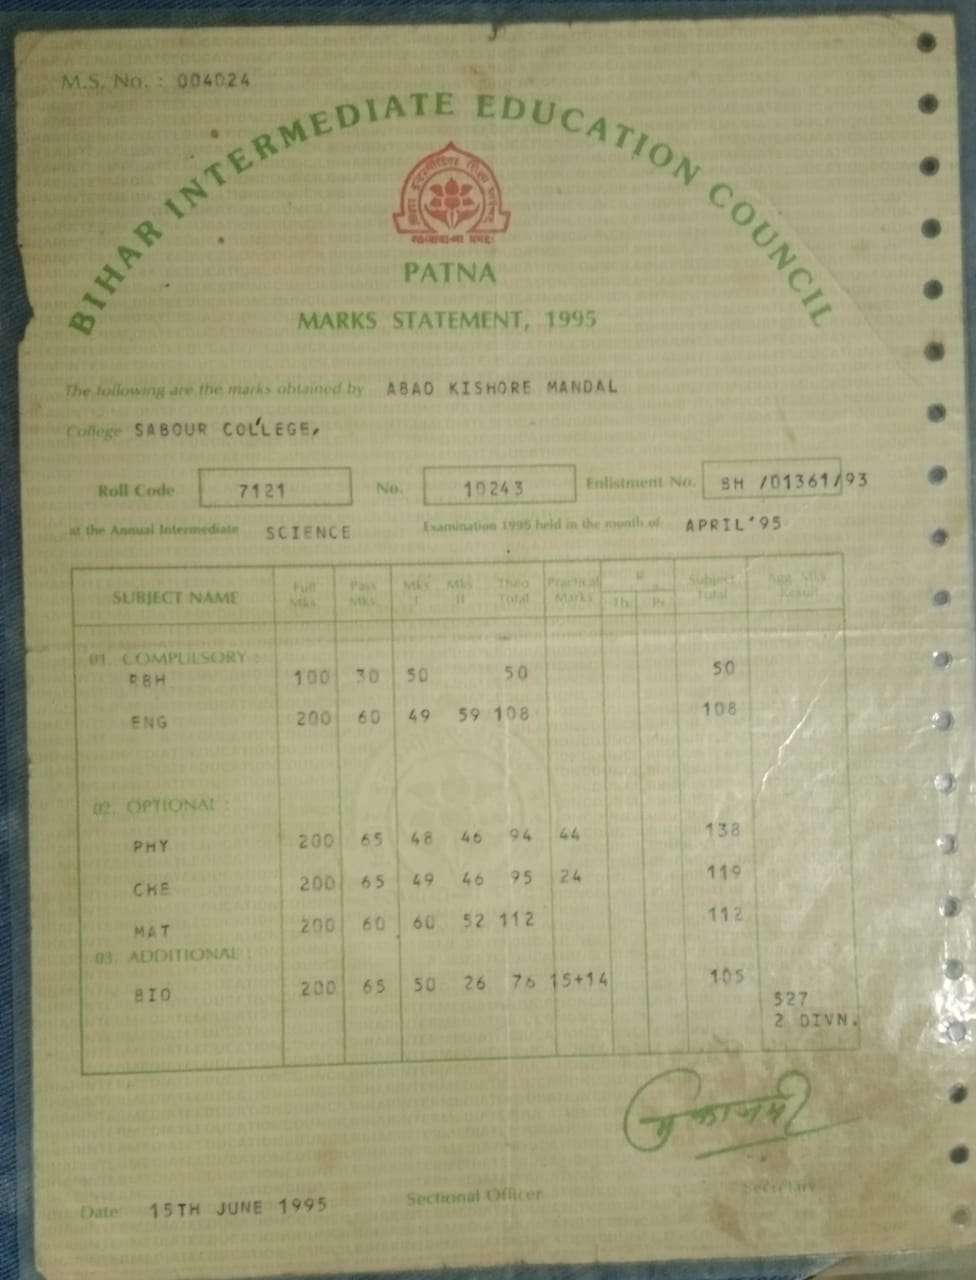 M.S. No. : 004024
BIHAR INTERMEDIATE EDUCATION COUNCIL
PATNA
MARKS STATEMENT, 1995
The following are the marks obtained by ABAD KISHORE MANDAL
College SABOUR COLLEGE,
Roll Code 7121 No. 10243 Enlistment No. BH /01361/93
at the Annual Intermediate SCIENCE Examination 1995 held in the month of APRIL'95
SUBJECT NAME Full Mks. Pass Mks. Mks I Mks II Theo Total Practical Marks Th. Pr. Subject Total Agg. Mks Result
01. COMPULSORY :
RBH 100 30 50 50 50
ENG 200 60 49 59 108 108
02. OPTIONAL :
PHY 200 65 48 46 94 44 138
CHE 200 65 49 46 95 24 119
MAT 200 60 60 52 112 112
03. ADDITIONAL :
BIO 200 65 50 26 76 15+14 105
527
2 DIVN.
Date 15TH JUNE 1995 Sectional Officer Secretary